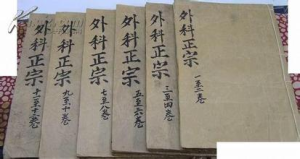 外科正宗
一至二卷
外科正宗
三至四卷
外科正宗
五至六卷
外科正宗
七至八卷
外科正宗
九至十卷
外科正宗
十一至十二卷